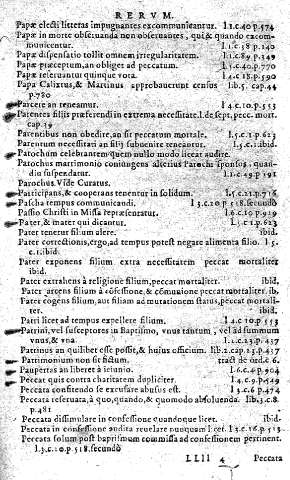 RERVM.
Papæ electi litteras impugnantes excommunicantur. l 1.c.40 p.574
Papæ in morte obseruanda non obseruantes, qui & quando excom-
municentur. l 1.c.58 p.140
Papæ dispensatio tollit omnem irregularitatem. l 3.c.89 p.149
Papæ præceptum, an obliget ad peccatum. l 3.c.40 p.770
Papæ reseruantur quinque vota. l 4.c.18 p.590
Papa Calixtus, & Martinus approbauerunt census lib.5. cap.44
p.780
Parcere an teneamur. l 4.c.10.p.553
Parentes filiis præferendi in extrema necessitate. l de sept. pecc. mort.
cap.19
Parentibus non obedire, an sit peccatum mortale. l 5.c.1 p.623
Parentum necessitati an filij subuenire teneantur. l 5.c.1.ibid.
Parochum celebrantem quem nullo modo liceat audire.
Parochus matrimonio coniungens alterius Parochi sponsos, quan-
diu suspendatur. l 1.c.49 p.191
Parochus Vide Curatus.
Participans, & cooperans tenentur in solidum. l 5.c.21.p.716
Pascha tempus communicandi. l 3.c.20 p.518.secundo
Passio Christi in Missa repræsentatur. l 6.c.19 p.919
Pater, & mater qui dicantur. l 5.c.1 p.623
Pater tenetur filium alere. ibid.
Pater correctionis, ergo, ad tempus potest negare alimenta filio. l 5.
c.1.ibid.
Pater exponens filium extra necessitatem peccat mortaliter
ibid.
Pater extrahens à religione filium, peccat mortaliter. ibid.
Pater arcens filium à cõfessione, & cõmunione peccat mortaliter. ib.
Pater cogens filium, aut filiam ad mutationem status, peccat mortali-
ter. ibid.
Patri licet ad tempus expellere filium. l 4.c.10 p.553
Patrini, vel susceptores in Baptismo, vnus tantum, vel ad summum
vnus, & vna. l 2.c.23 p.437
Patrinus an quilibet esse possit, & huius officium. lib.2.cap.23 p.437
Patrimonium non sit fictum. tract de ord.c 6.
Paupertas an liberet à ieiunio. l 6.c.4 p.904
Peccat quis contra charitatem dupliciter. l 4.c.9 p.549
Peccata confitendo se excusare abusus est. l 3.c.6 p.474
Peccata reseruata, à quo, quando, & quomodo absoluenda. lib.3.c.8.
p.481
Peccata dissimulare in confessione quandoque licet. ibid.
Peccata in confessione audita reuelare nunquam licet. l 3.c.16 p.513.
Peccata solum post baptismum commissa ad confessionem pertinent.
l.3.c.10.p.518.secundò
LLll 4 Peccata